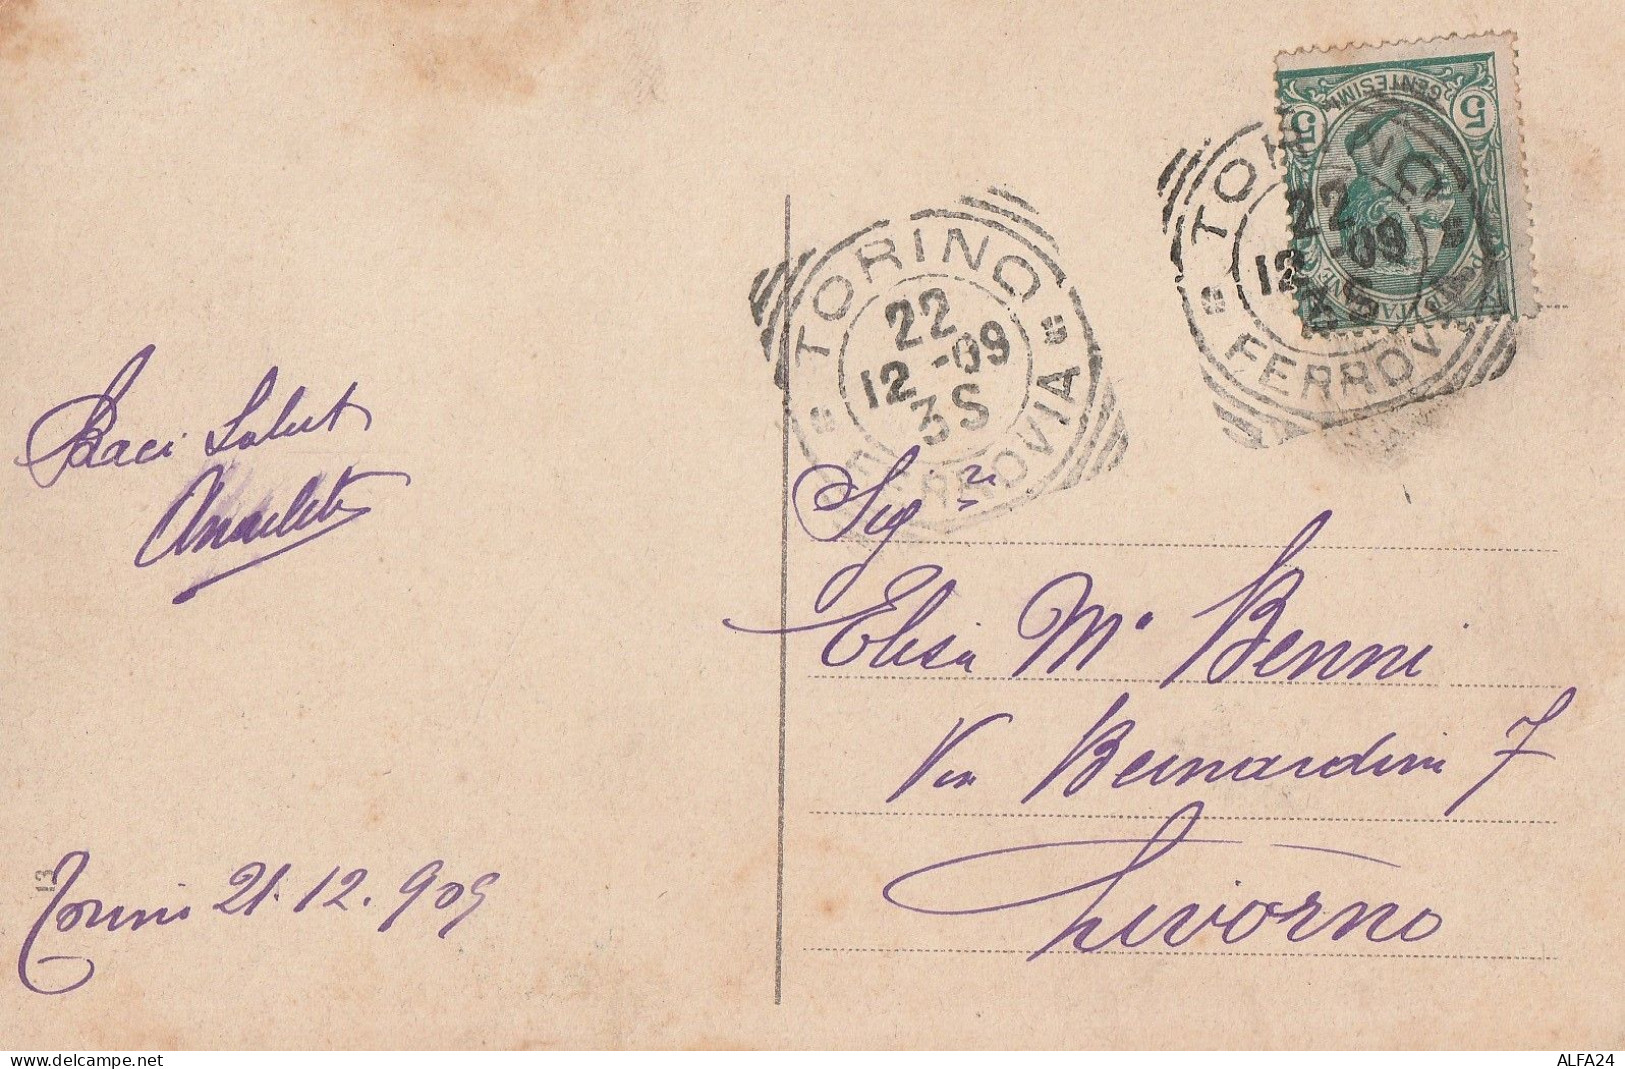 Baci Saluti
Anacleto
13
Torino 21.12.909
TORINO
22
12-09
3S
FERROVIA
TORINO
22
12-09
3S
FERROVIA
5 CENTESIMI 5
POSTE ITALIANE
Sig.ra
Elisa Ma Benni
Via Bernardini 7
Livorno
delcampe.net
ALFA24